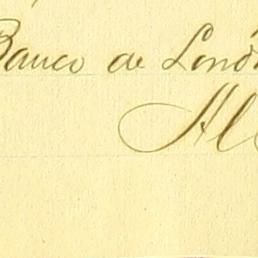 Banco de Lond
Al